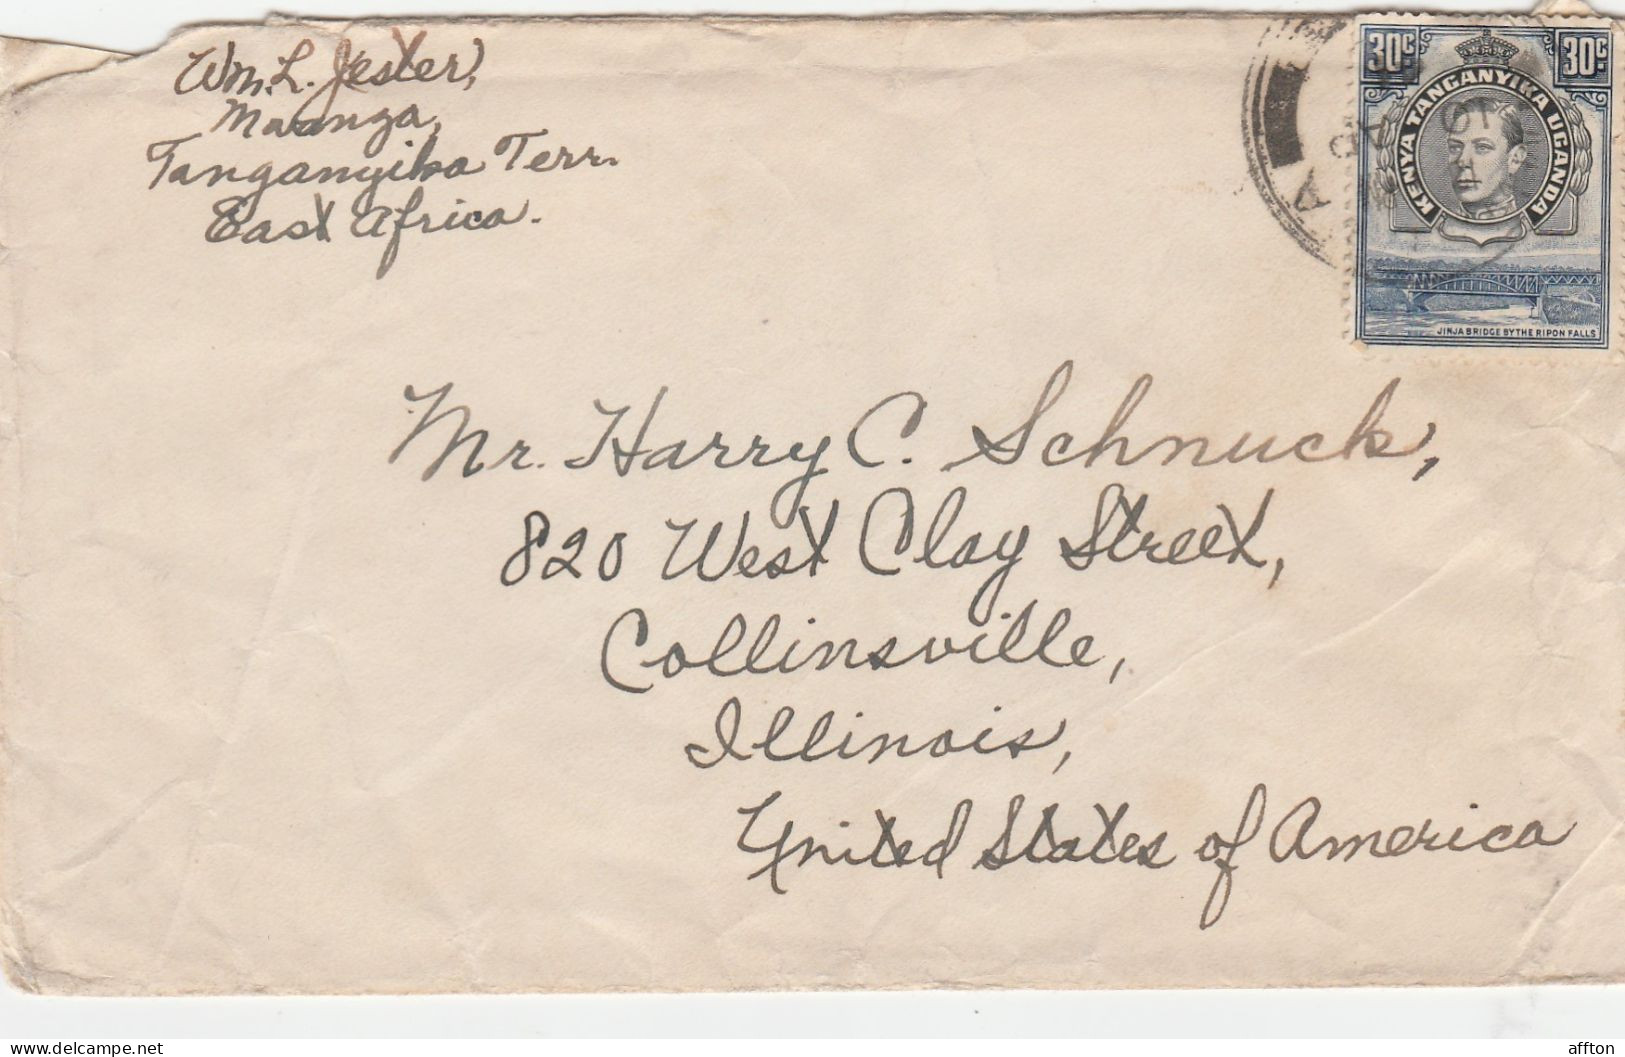 Wm. L. Jester,
Mwanza,
Tanganyika Terr.
East Africa.
30C
30C
KENYA TANGANYIKA UGANDA
JINJA BRIDGE BY THE RIPON FALLS
Mr. Harry C. Schnuck,
820 West Clay Street,
Collinsville,
Illinois,
United States of America
delcampe.net
affton